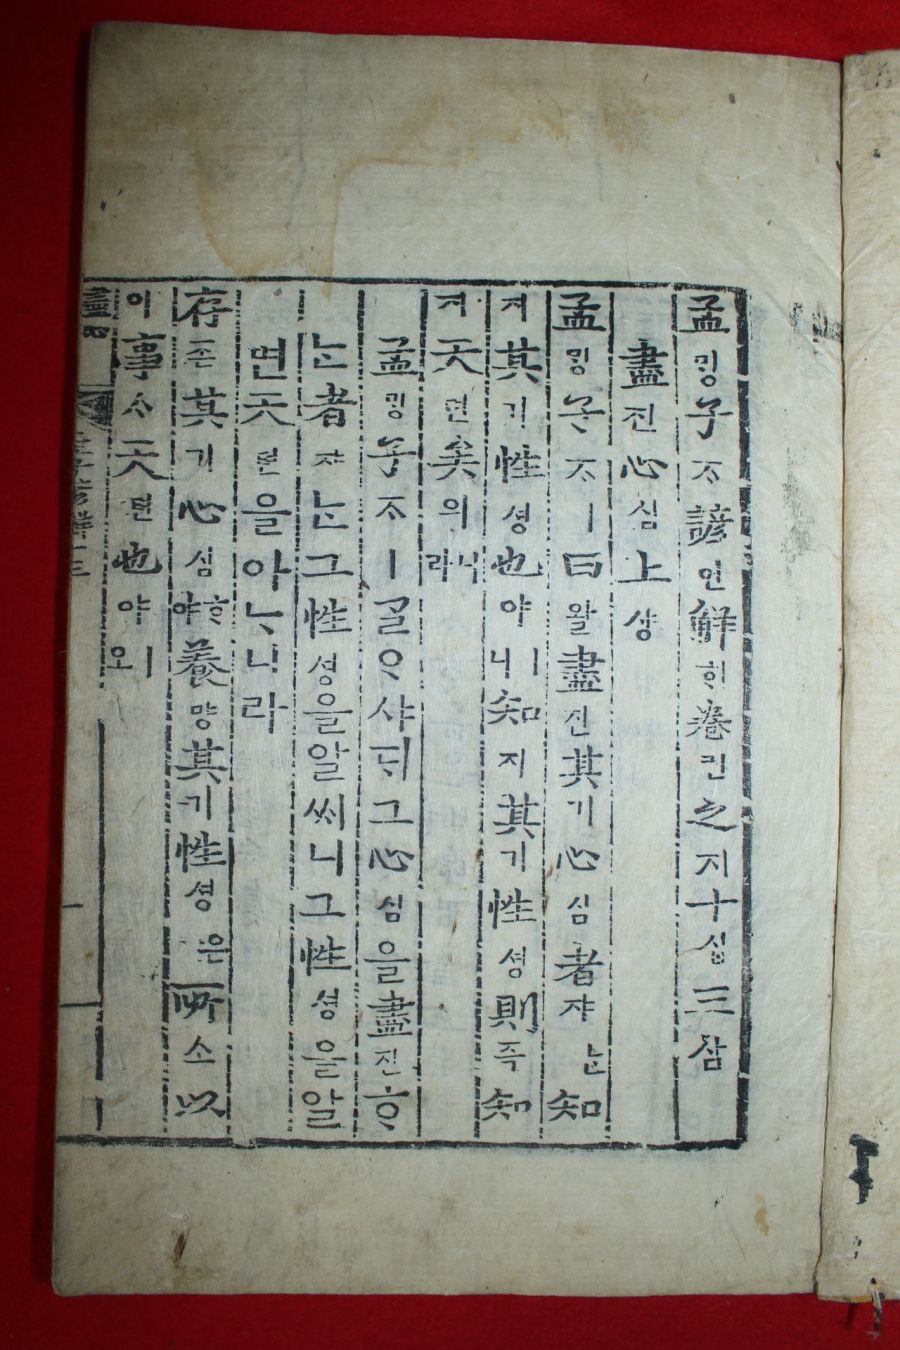 孟ᄆᆡᆼ子ᄌᆞ諺언觧ᄒᆡ卷권之지十십三삼
盡진心심上샹
孟ᄆᆡᆼ子ᄌᆞㅣ曰왈盡진其기心심者쟈ᄂᆞᆫ知
지其기性셩也야ㅣ니知지其기性셩則즉知
지天텬矣의니라
孟ᄆᆡᆼ子ᄌᆞㅣᄀᆞᆯᄋᆞ샤ᄃᆡ그心심을盡진ᄒᆞ
ᄂᆞᆫ者쟈ᄂᆞᆫ그性셩을알ᄡᅵ니그性셩을알
면天텬을아ᄂᆞ니라
存존其기心심ᄒᆞ야養양其기性셩은所소以
이事ᄉᆞ天텬也야ㅣ오
盡心